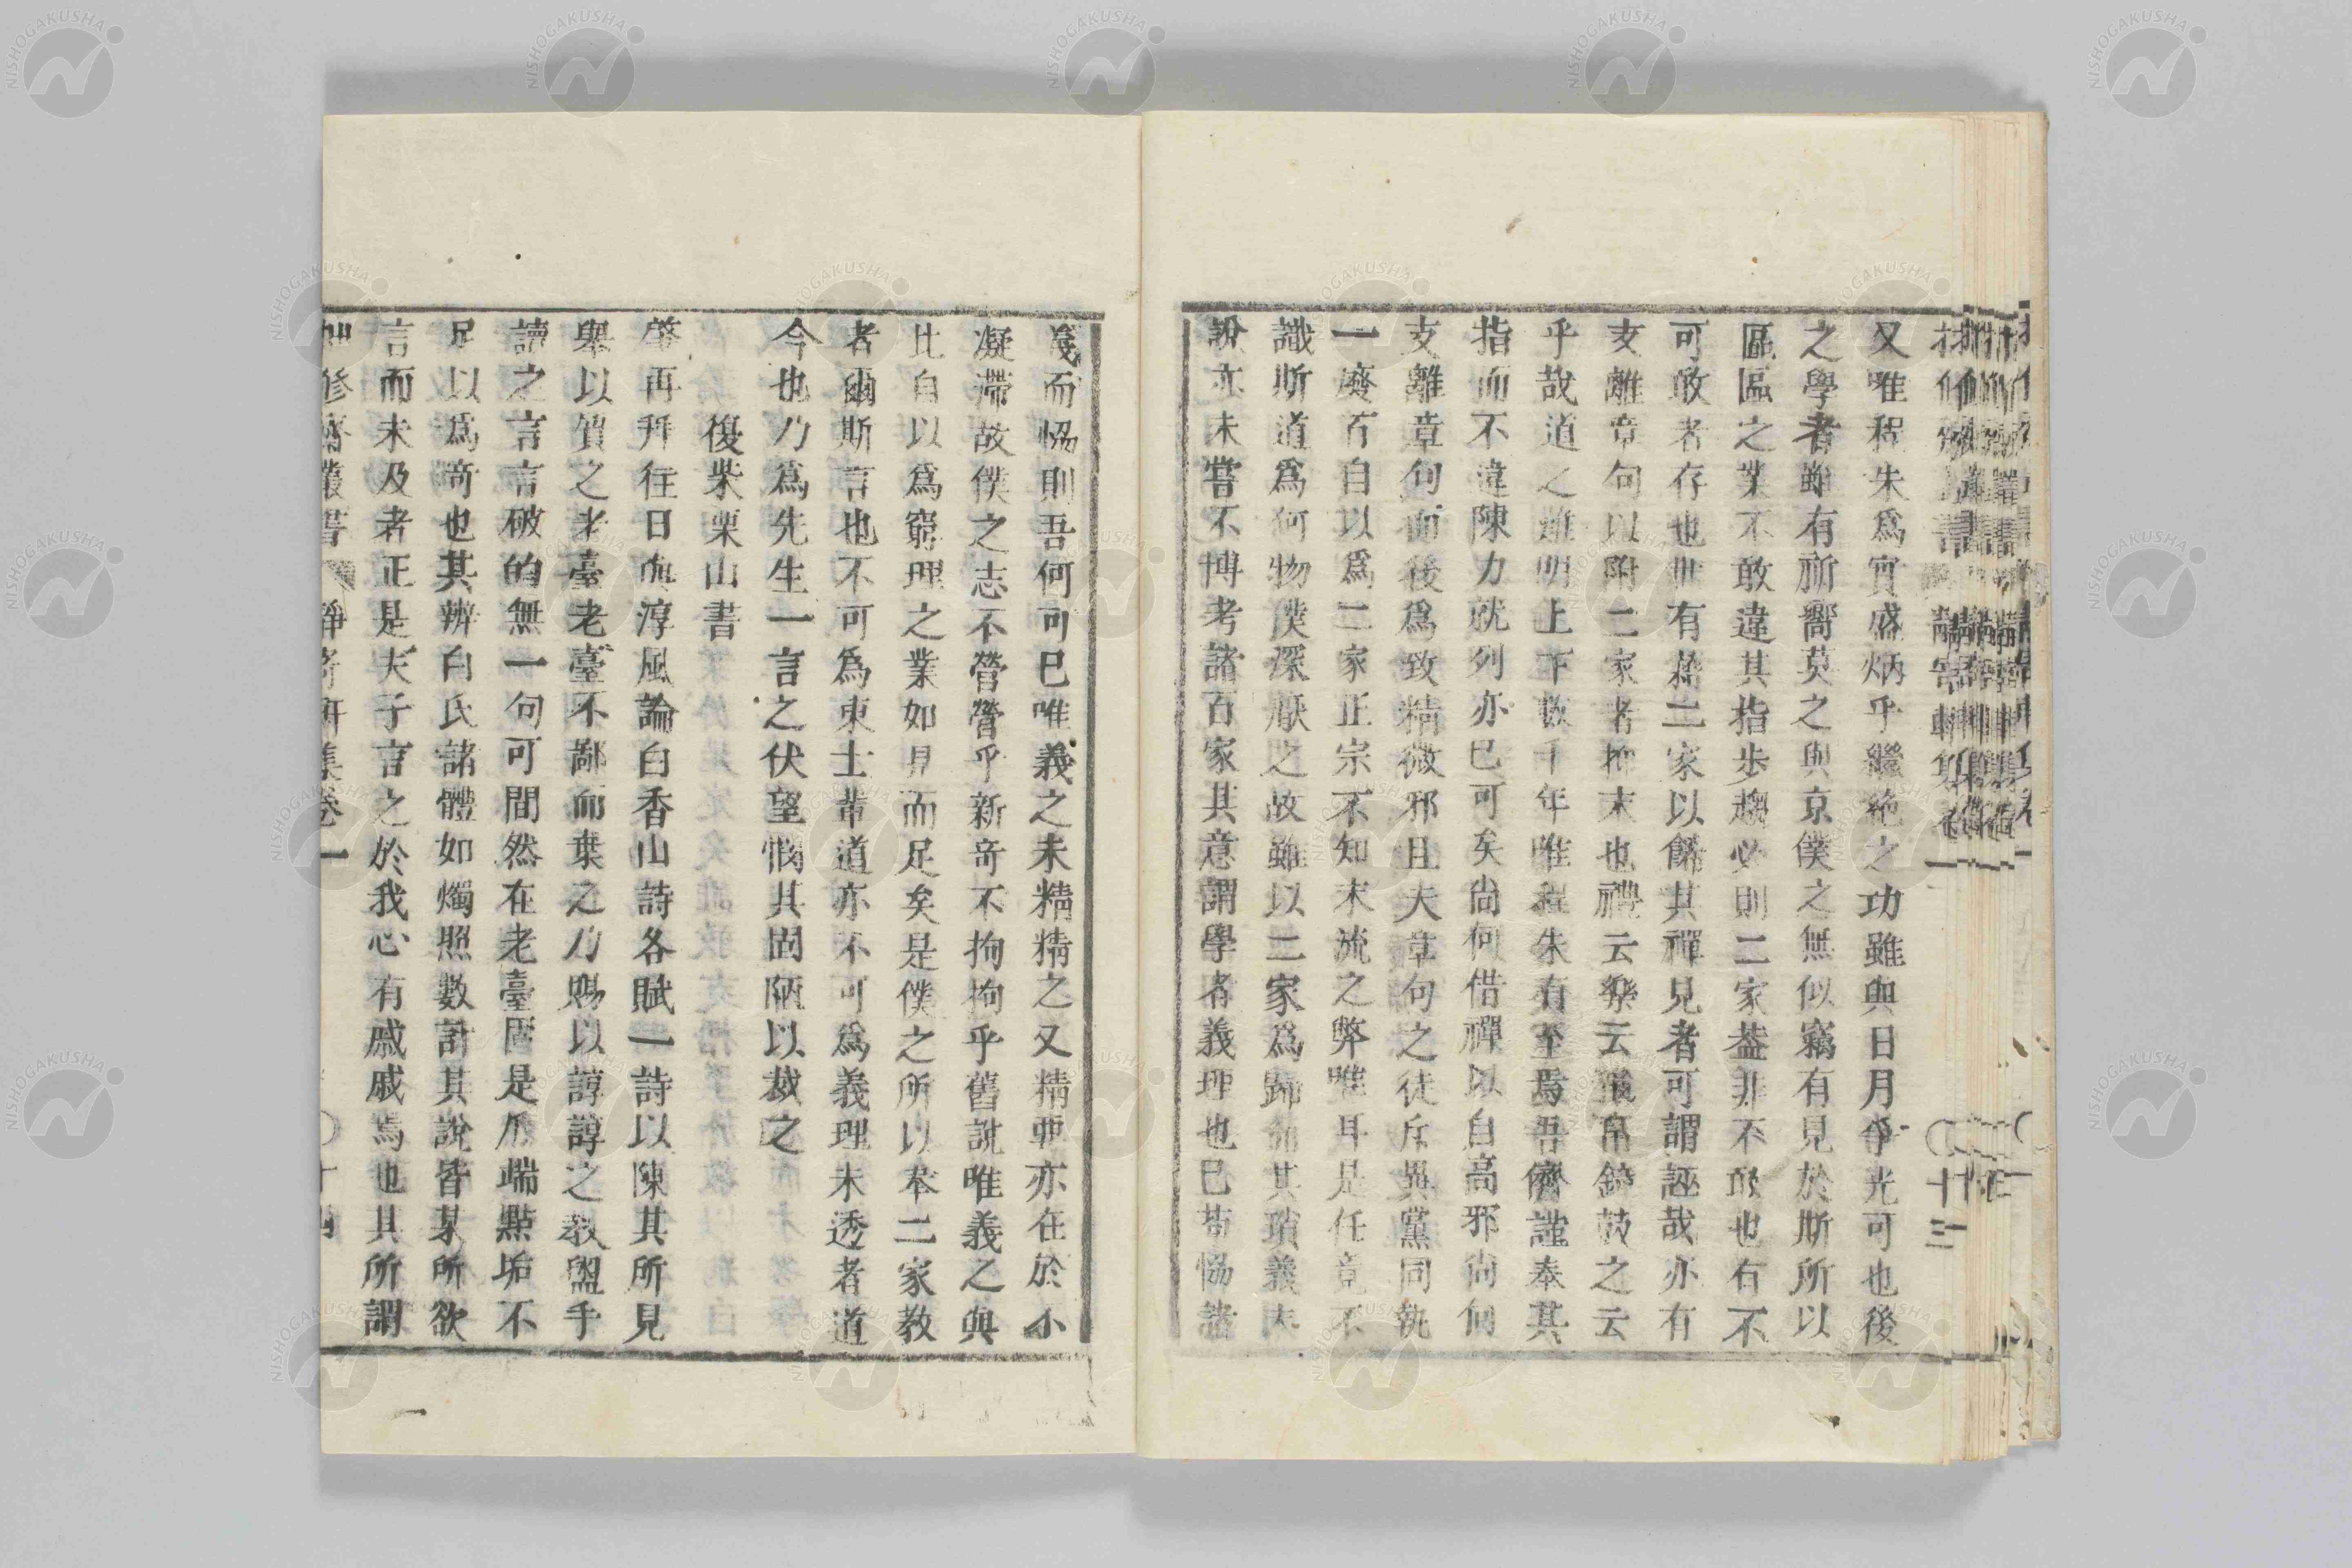 又唯程朱爲宵盛炳乎繼絶之功雖與日月爭光可也後
之學者雖有所嚮莫之與京僕之無似竊有見於斯所以
區區之業不敢違其指步趨必則二家葢非不敢也有不
可敢者存也世有藉二家以餙其禪見者可謂誣哉亦有
支離章句以附二家者抑末也禮云樂云玉帛鐘鼓之云
乎哉道之難明上下數千年唯程朱有至焉吾儕謹奉其
指而不違陳力就列亦已可矣尚何借禪以自高邪尚何
支離章句而後爲致精微邪且夫章句之徒斥異黨同執
一廢百自以爲二家正宗不知末流之弊唯耳是任竟不
識斯道爲何物僕深厭之故雖以二家爲歸而其瑣義末
說亦未嘗不博考諸百家其意謂學者義理也已苟協諸
義而協則吾何可已唯義之未精精之又精要亦在於不
凝滯故僕之志不營營乎新奇不拘拘乎舊說唯義之與
比自以爲窮理之業如是而足矣是僕之所以奉二家教
者爾斯言也不可爲東士輩道亦不可爲義理未透者道
今也乃爲先生一言之伏望憫其固陋以裁之
復柴栗山書
肇再拜往日與淳風論白香山詩各賦一詩以陳其所見
舉以質之老臺老臺不鄙而棄之乃賜以諄諄之教盥手
讀之言言破的無一句可間然在老臺固是爪端點垢不
足以爲奇也其辨白氏諸體如燭照數計其說皆某所欲
言而未及者正是夫子言之於我心有戚戚焉也其所謂
修齋叢書 靜寄軒集卷一 〇十四
靜寄軒集卷一 〇十三
NISHOGAKUSHA